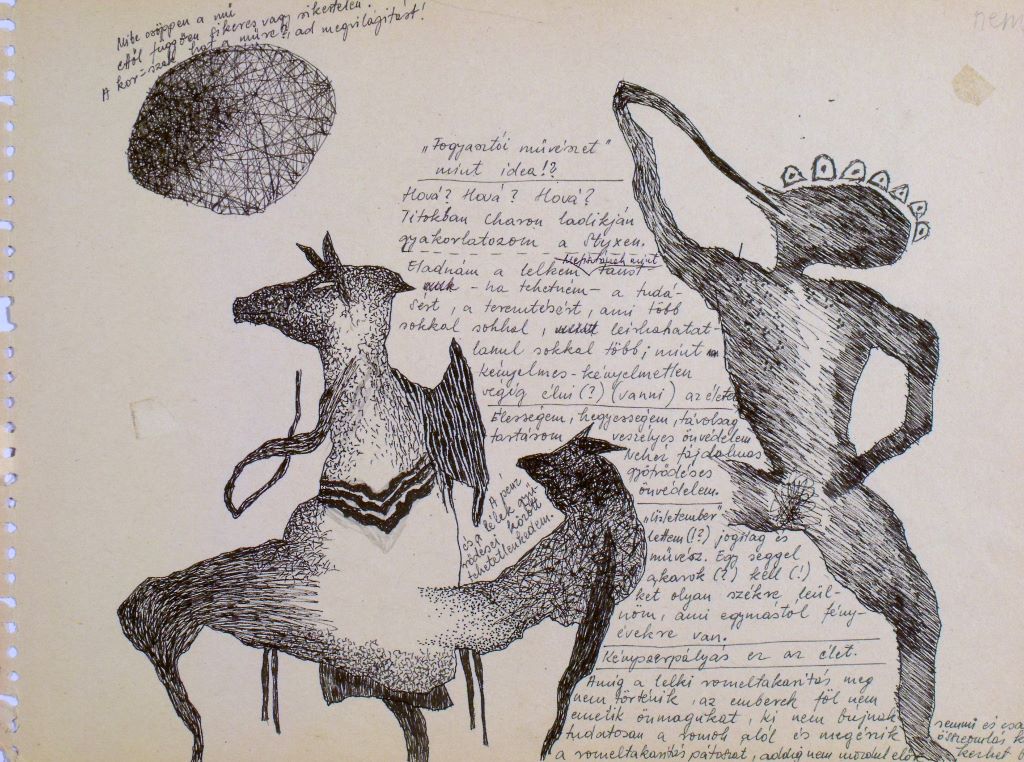 Mibe csöppen a mű
ettől függően sikeres vagy sikertelen.
A kor=szak hat a műre?, ad megvilágítást!
nem
„Fogyasztói művészet"
mint idea!?
Hová? Hová? Hová?
Titokban Charon ladikján
gyakorlatozom a Styxen.
Eladnám a lelkem Faust
- ha tehetném - a tudá-
sért, a teremtésért, ami több
sokkal sokkal, leírhahatat-
lanul sokkal több, mint
kényelmes-kényelmetlen
végig élni (?) (vanni) az élet
Élességem, hegyességem, távolság
tartásom veszélyes önvédelem
Nehéz fájdalmas
gyötrődéses
önvédelem.
A pénz
és a lélek gyű-
között
tehetetlenkedem.
lettem (!?) jogilag és
művész. Egy seggel
akarok (?) kell (!)
két olyan székre leül-
nöm, ami egymástól fény-
évekre van.
Kényszerpályás ez az élet.
Amíg a lelki romeltakarítás meg
nem történik, az emberek föl nem
emelik önmagukat, ki nem bújnak
tudatosan a romok alól és megérzik
a romeltakarítás pátoszát, addig nem mozdul előre
semmi és csa
összeomlás k